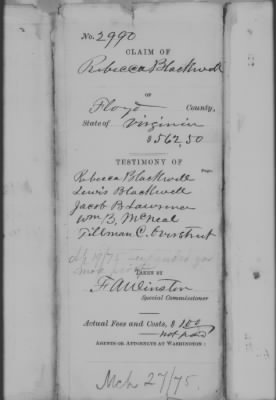 No. 2990
CLAIM OF
Rebecca Blackwell
OF
Floyd County,
State of Virginia
$562,50
TESTIMONY OF
Page.
Rebecca Blackwell
Lewis Blackwell
Jacob B Lawrence
Wm B, McNeal
Tillman C. Overstreet
TAKEN BY
F A Winston
Special Commissioner
Actual Fees and Costs, $
not paid
AGENTS OR ATTORNEYS AT WASHINGTON:
Mch 27/75.